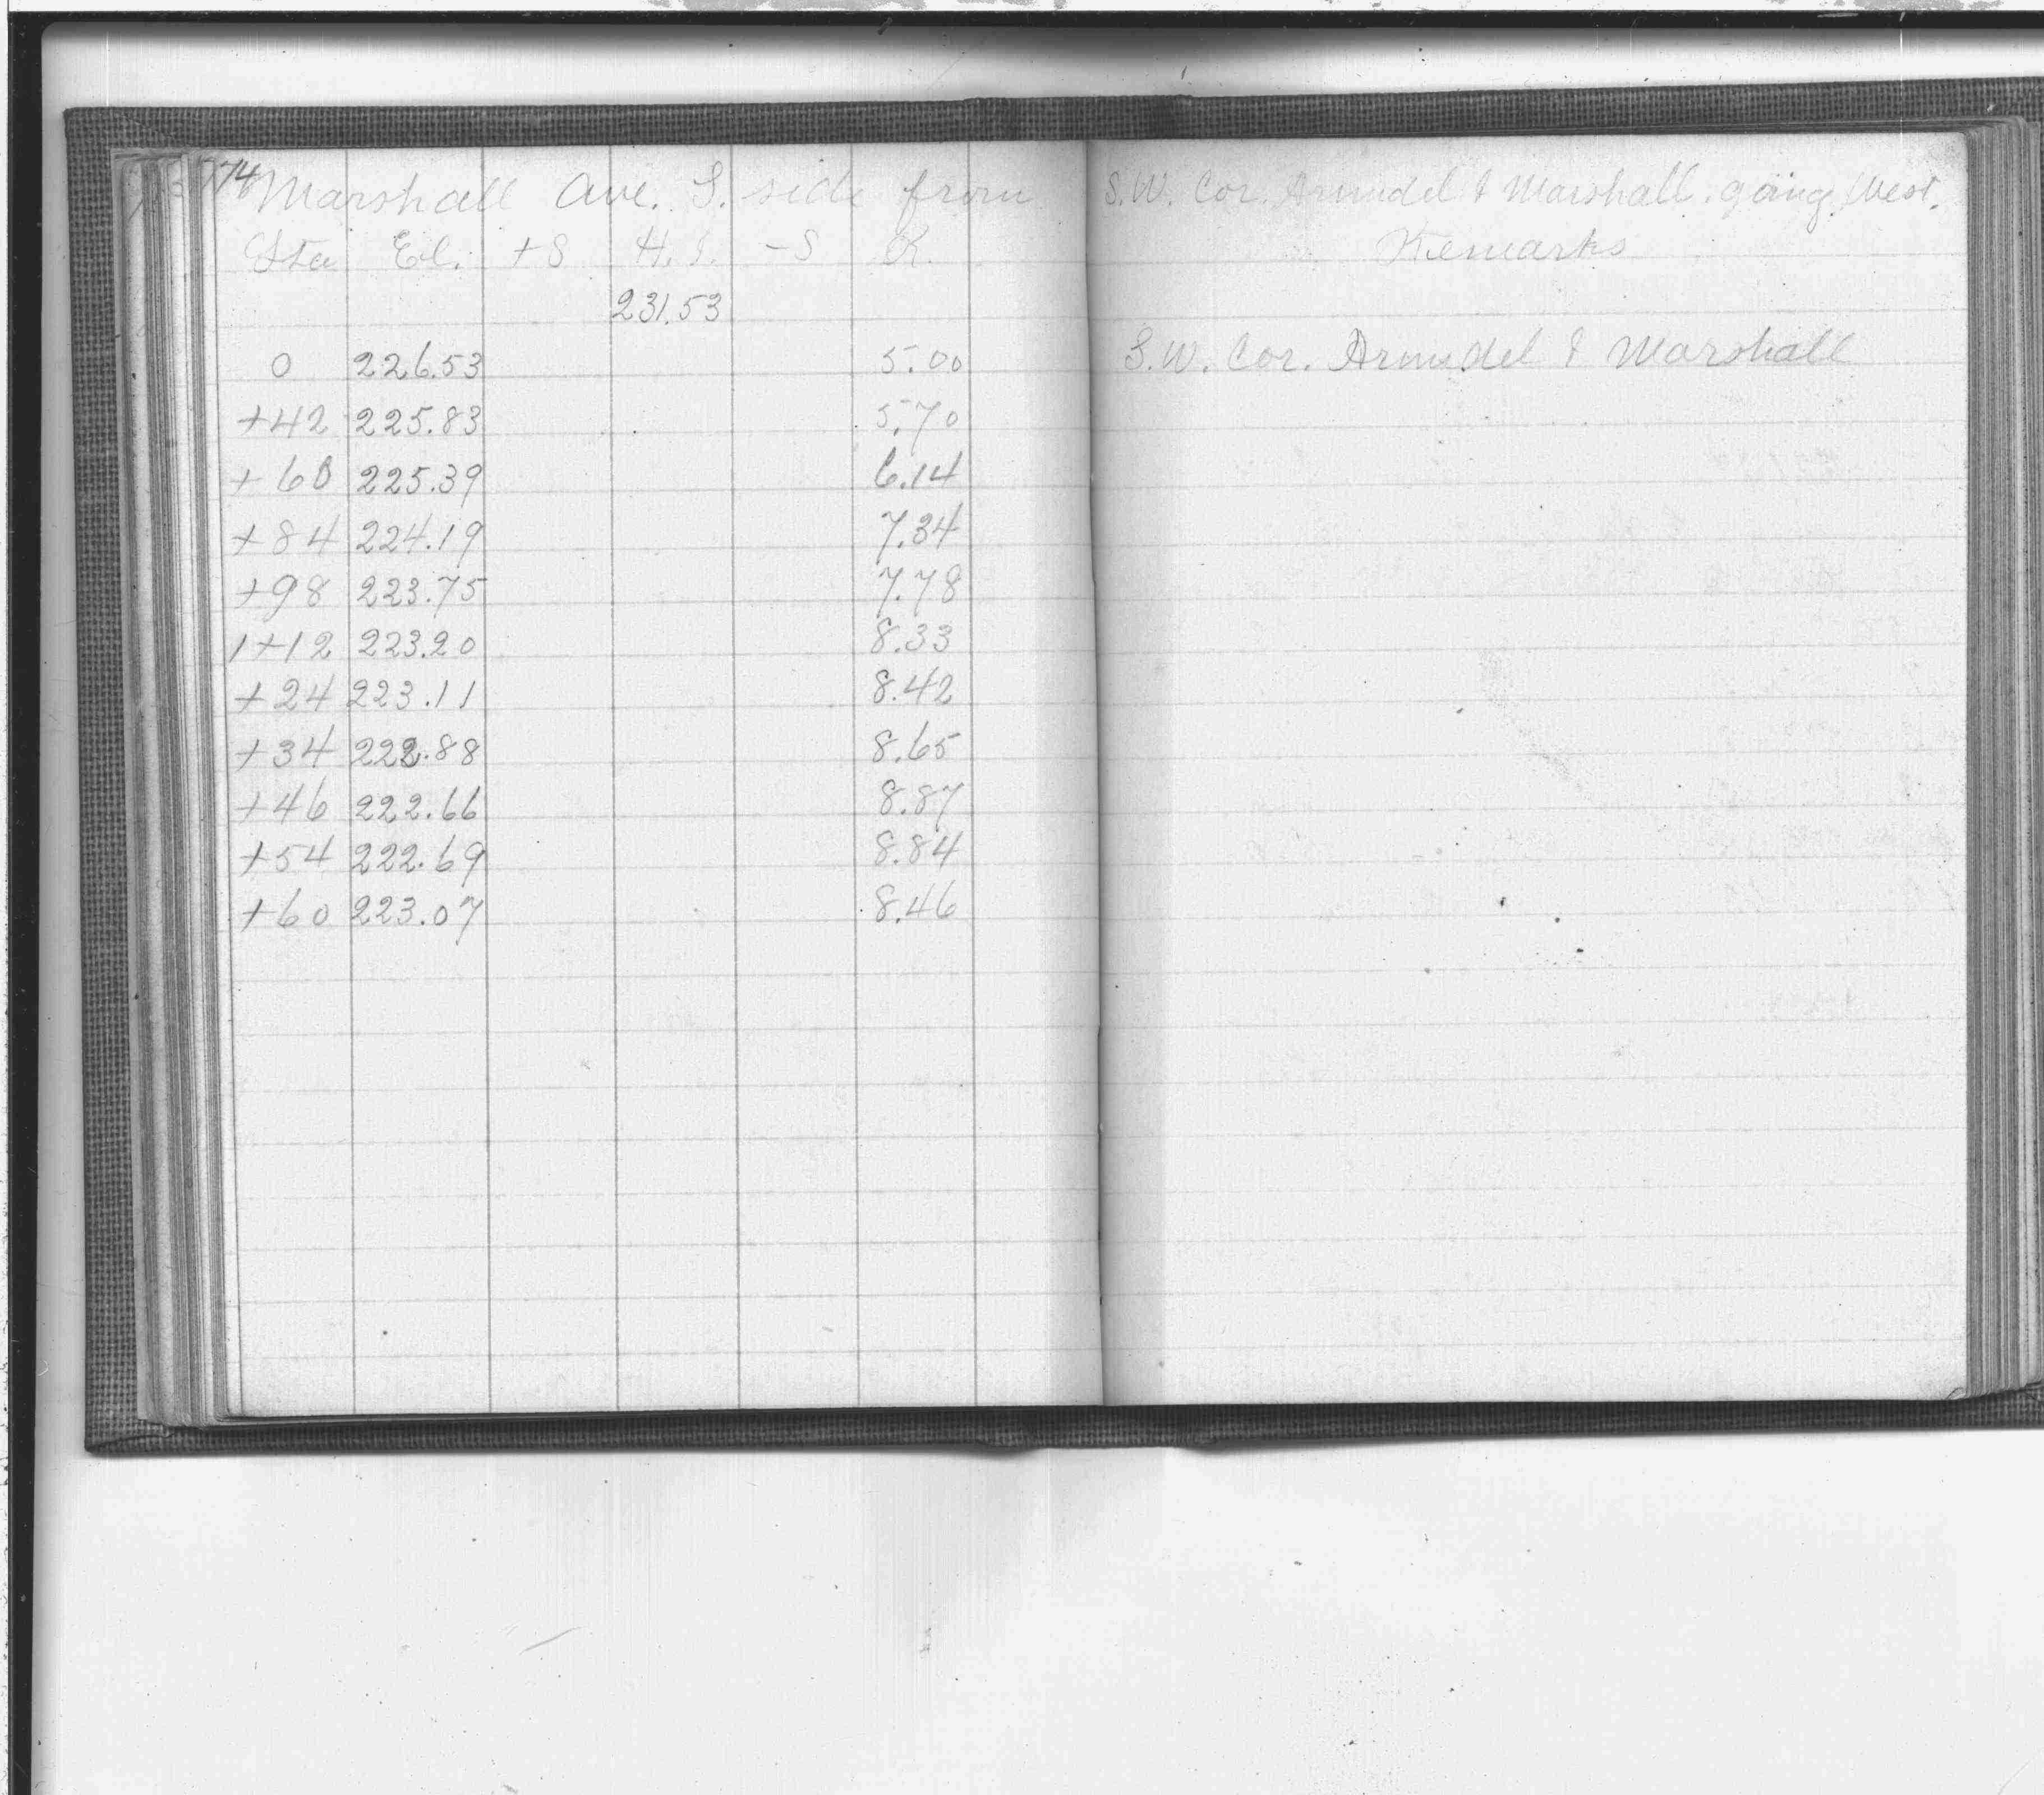 174
Marshall Ave. S. side from S.W. Cor. Arundel & Marshall. going West.
Sta El. +S H.I. -S R. Remarks
231.53
0 226.53 5.00 S.W. Cor. Arundel & Marshall
+42 225.83 5.70
+60 225.39 6.14
+84 224.19 7.34
+98 223.75 7.78
1+12 223.20 8.33
+24 223.11 8.42
+34 222.88 8.65
+46 222.66 8.87
+54 222.69 8.84
+60 223.07 8.46